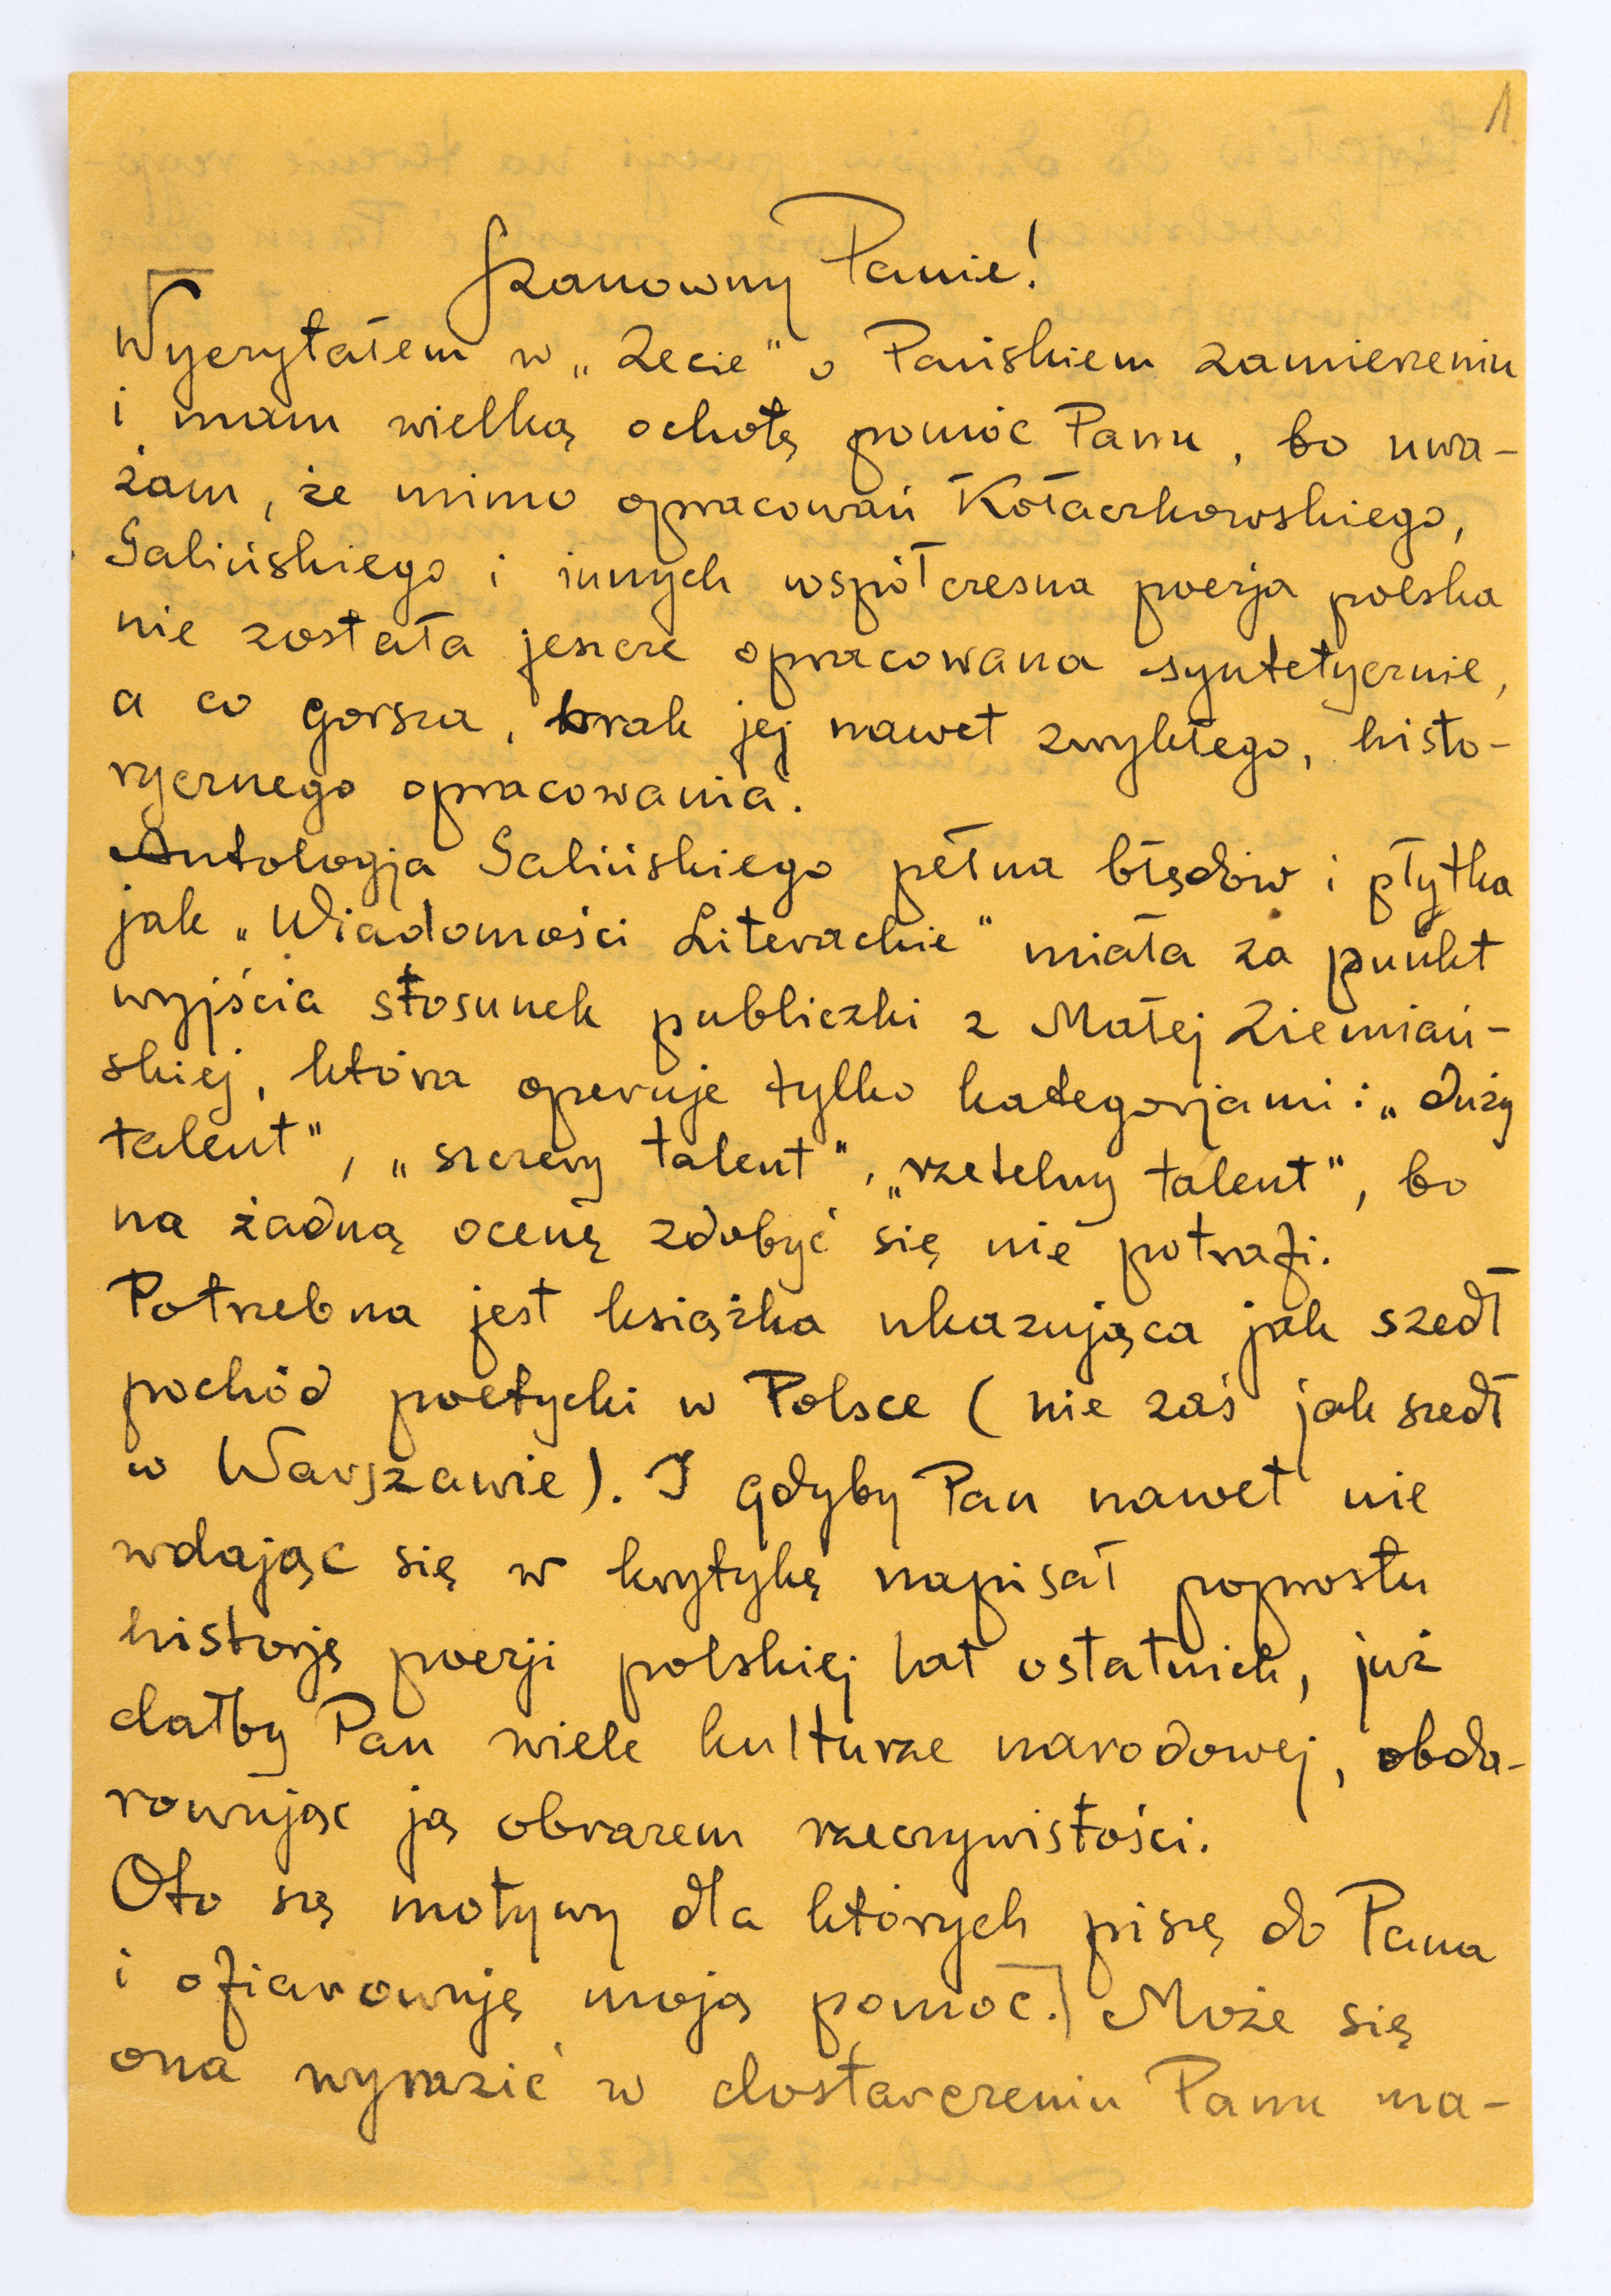 1
Szanowny Panie!
Wyczytałem w „Zecie" o Pańskiem zamierzeniu
i mam wielką ochotę pomóc Panu, bo uwa-
żam, że mimo opracowań Kołaczkowskiego,
Galińskiego i innych współczesna poezja polska
nie została jeszcze opracowana syntetycznie,
a co gorsza, brak jej nawet zwykłego, histo-
rycznego opracowania.
Antologja Galińskiego pełna błędów i płytka
jak „Wiadomości Literackie" miała za punkt
wyjścia stosunek publiczki z Małej Ziemiań-
skiej, która operuje tylko kategorjami: „duży
talent", „szczery talent", „rzetelny talent", bo
na żadną ocenę zdobyć się nie potrafi.
Potrzebna jest książka ukazująca jak szedł
pochód poetycki w Polsce (nie zaś jak szedł
w Warszawie). I gdyby Pan nawet nie
wdając się w krytykę napisał poprostu
historję poezji polskiej lat ostatnich, już
dałby Pan wiele kulturze narodowej, obda-
rowując ją obrazem rzeczywistości.
Oto są motywy dla których piszę do Pana
i ofiarowuję moją pomoc.] Może się
ona wyrazić w dostarczeniu Panu ma-